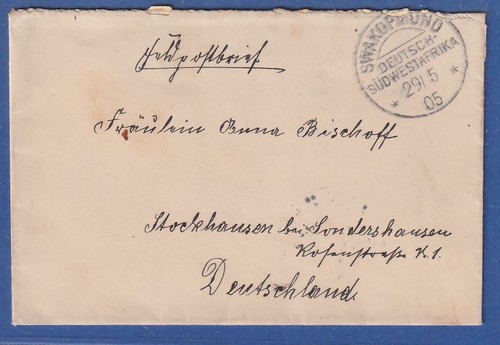 Feldpostbrief
SWAKOPMUND
DEUTSCH-
SÜDWESTAFRIKA
29/5
05
Fräulein Anna Bischoff
Stockhausen bei Sondershausen
Rosenstraße K.1.
Deutschland